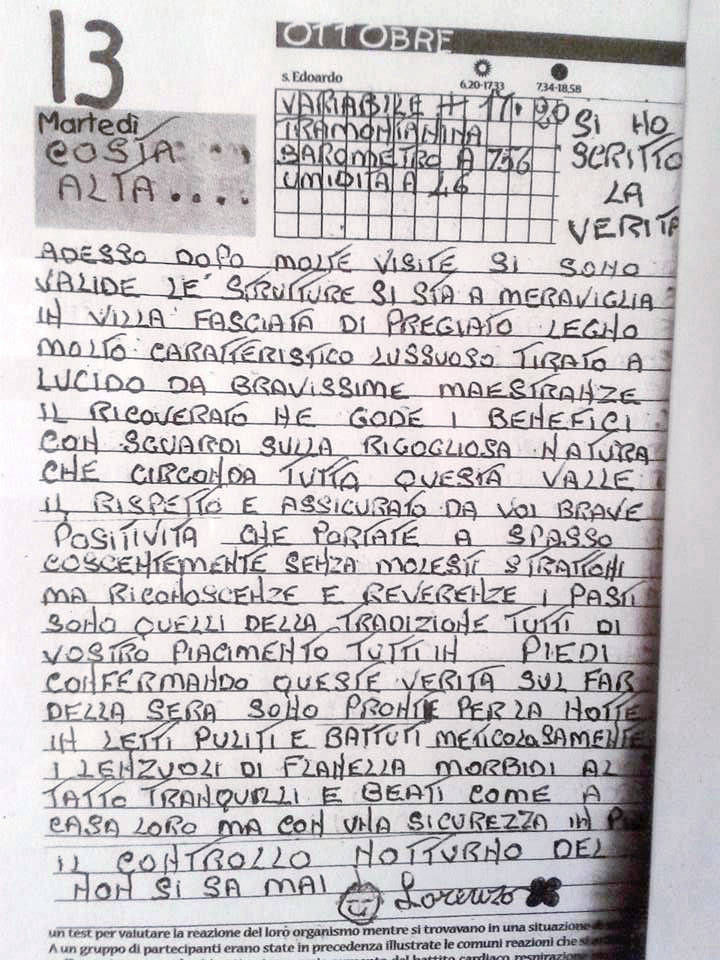 13
OTTOBRE
s. Edoardo
6,20-17,33
7,34-18,58
Martedì
COSTA
ALTA....
VARIABILE + 17. 20
TRAMONTANINA
BAROMETRO A 756
UMIDITA A 46
SI HO
SCRITTO
LA
VERITA
ADESSO DOPO MOLTE VISITE SI SONO
VALIDE LE' STRUTTURE SI STA A MERAVIGLIA
IN VILLA FASCIATA DI PREGIATO LEGNO
MOLTO CARATTERISTICO LUSSUOSO TIRATO A
LUCIDO DA BRAVISSIME MAESTRANZE
IL RICOVERATO NE GODE I BENEFICI
CON SGUARDI SULLA RIGOGLIOSA NATURA
CHE CIRCONDA TUTTA QUESTA VALLE
IL RISPETTO E ASSICURATO DA VOI BRAVE
POSITIVITA CHE PORTATE A SPASSO
COSCENTEMENTE SENZA MOLESTI STRATTONI
MA RICONOSCENZE E REVERENZE I PASTI
SONO QUELLI DELLA TRADIZIONE TUTTI DI
VOSTRO PIACIMENTO TUTTI IN PIEDI
CONFERMANDO QUESTE VERITA SUL FAR
DELLA SERA SONO PRONTE PER LA NOTTE
IN LETTI PULITI E BATTUTI METICOLOSAMENTE
I LENZUOLI DI FLANELLA MORBIDI AL
TATTO TRANQUILLI E BEATI COME A
CASA LORO MA CON UNA SICUREZZA IN
IL CONTROLLO NOTTURNO DEL
NON SI SA MAI Lorenzo
un test per valutare la reazione del loro organismo mentre si trovavano in una situazione
A un gruppo di partecipanti erano state in precedenza illustrate le comuni reazioni che si
battito cardiaco, respirazione